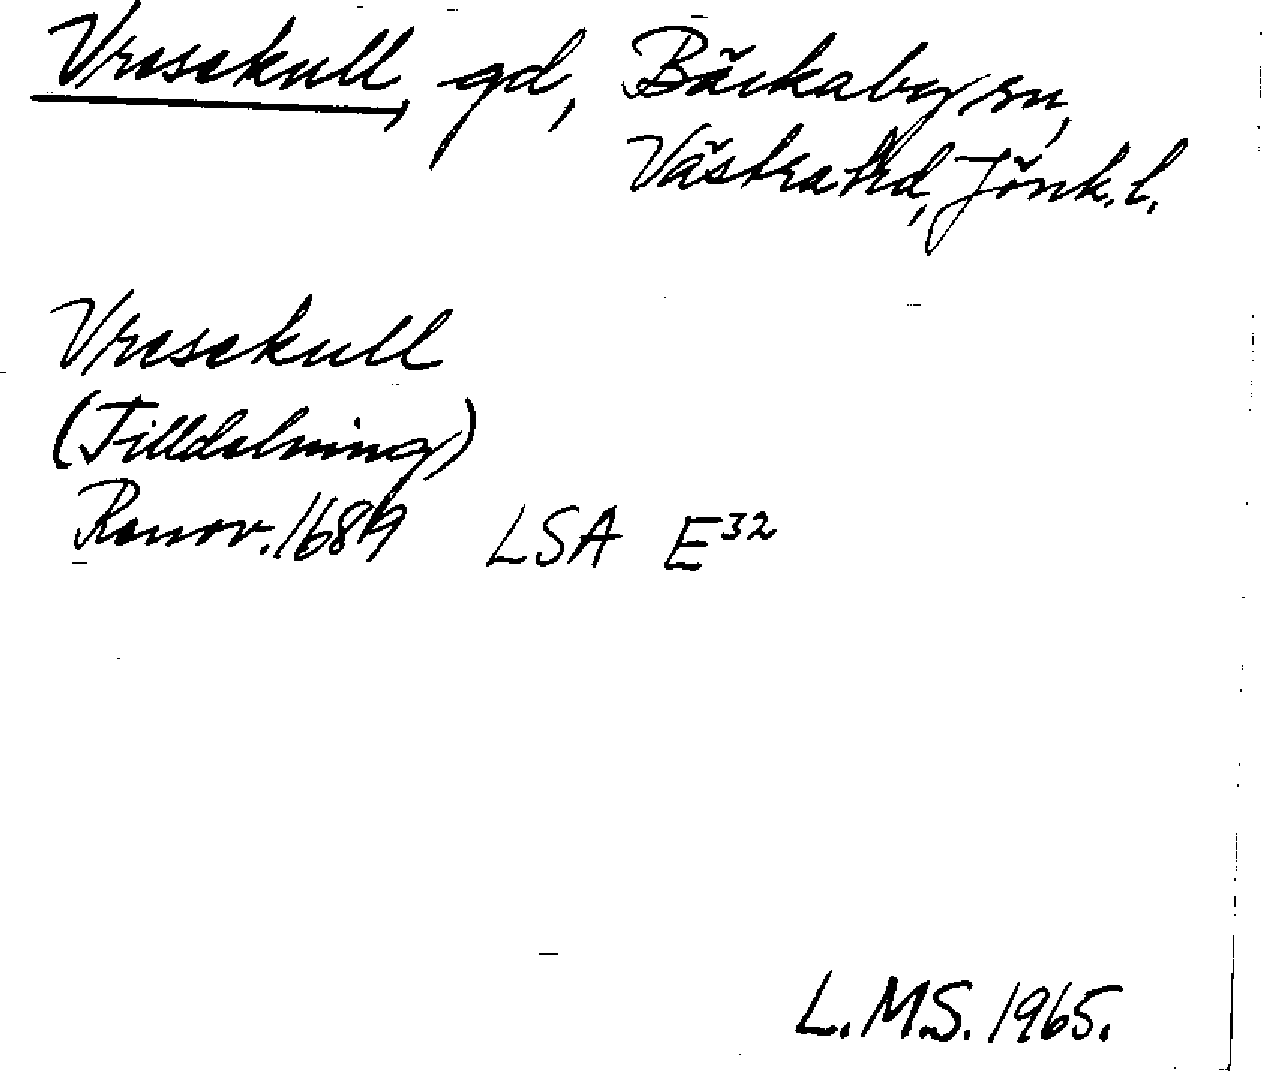 Vresekull, gd, Bäckaby sn,
Västra hd, Jönk. l.
Vresekull
(Tilldelning)
Renov. 1689 LSA E32
L.M.S. 1965.